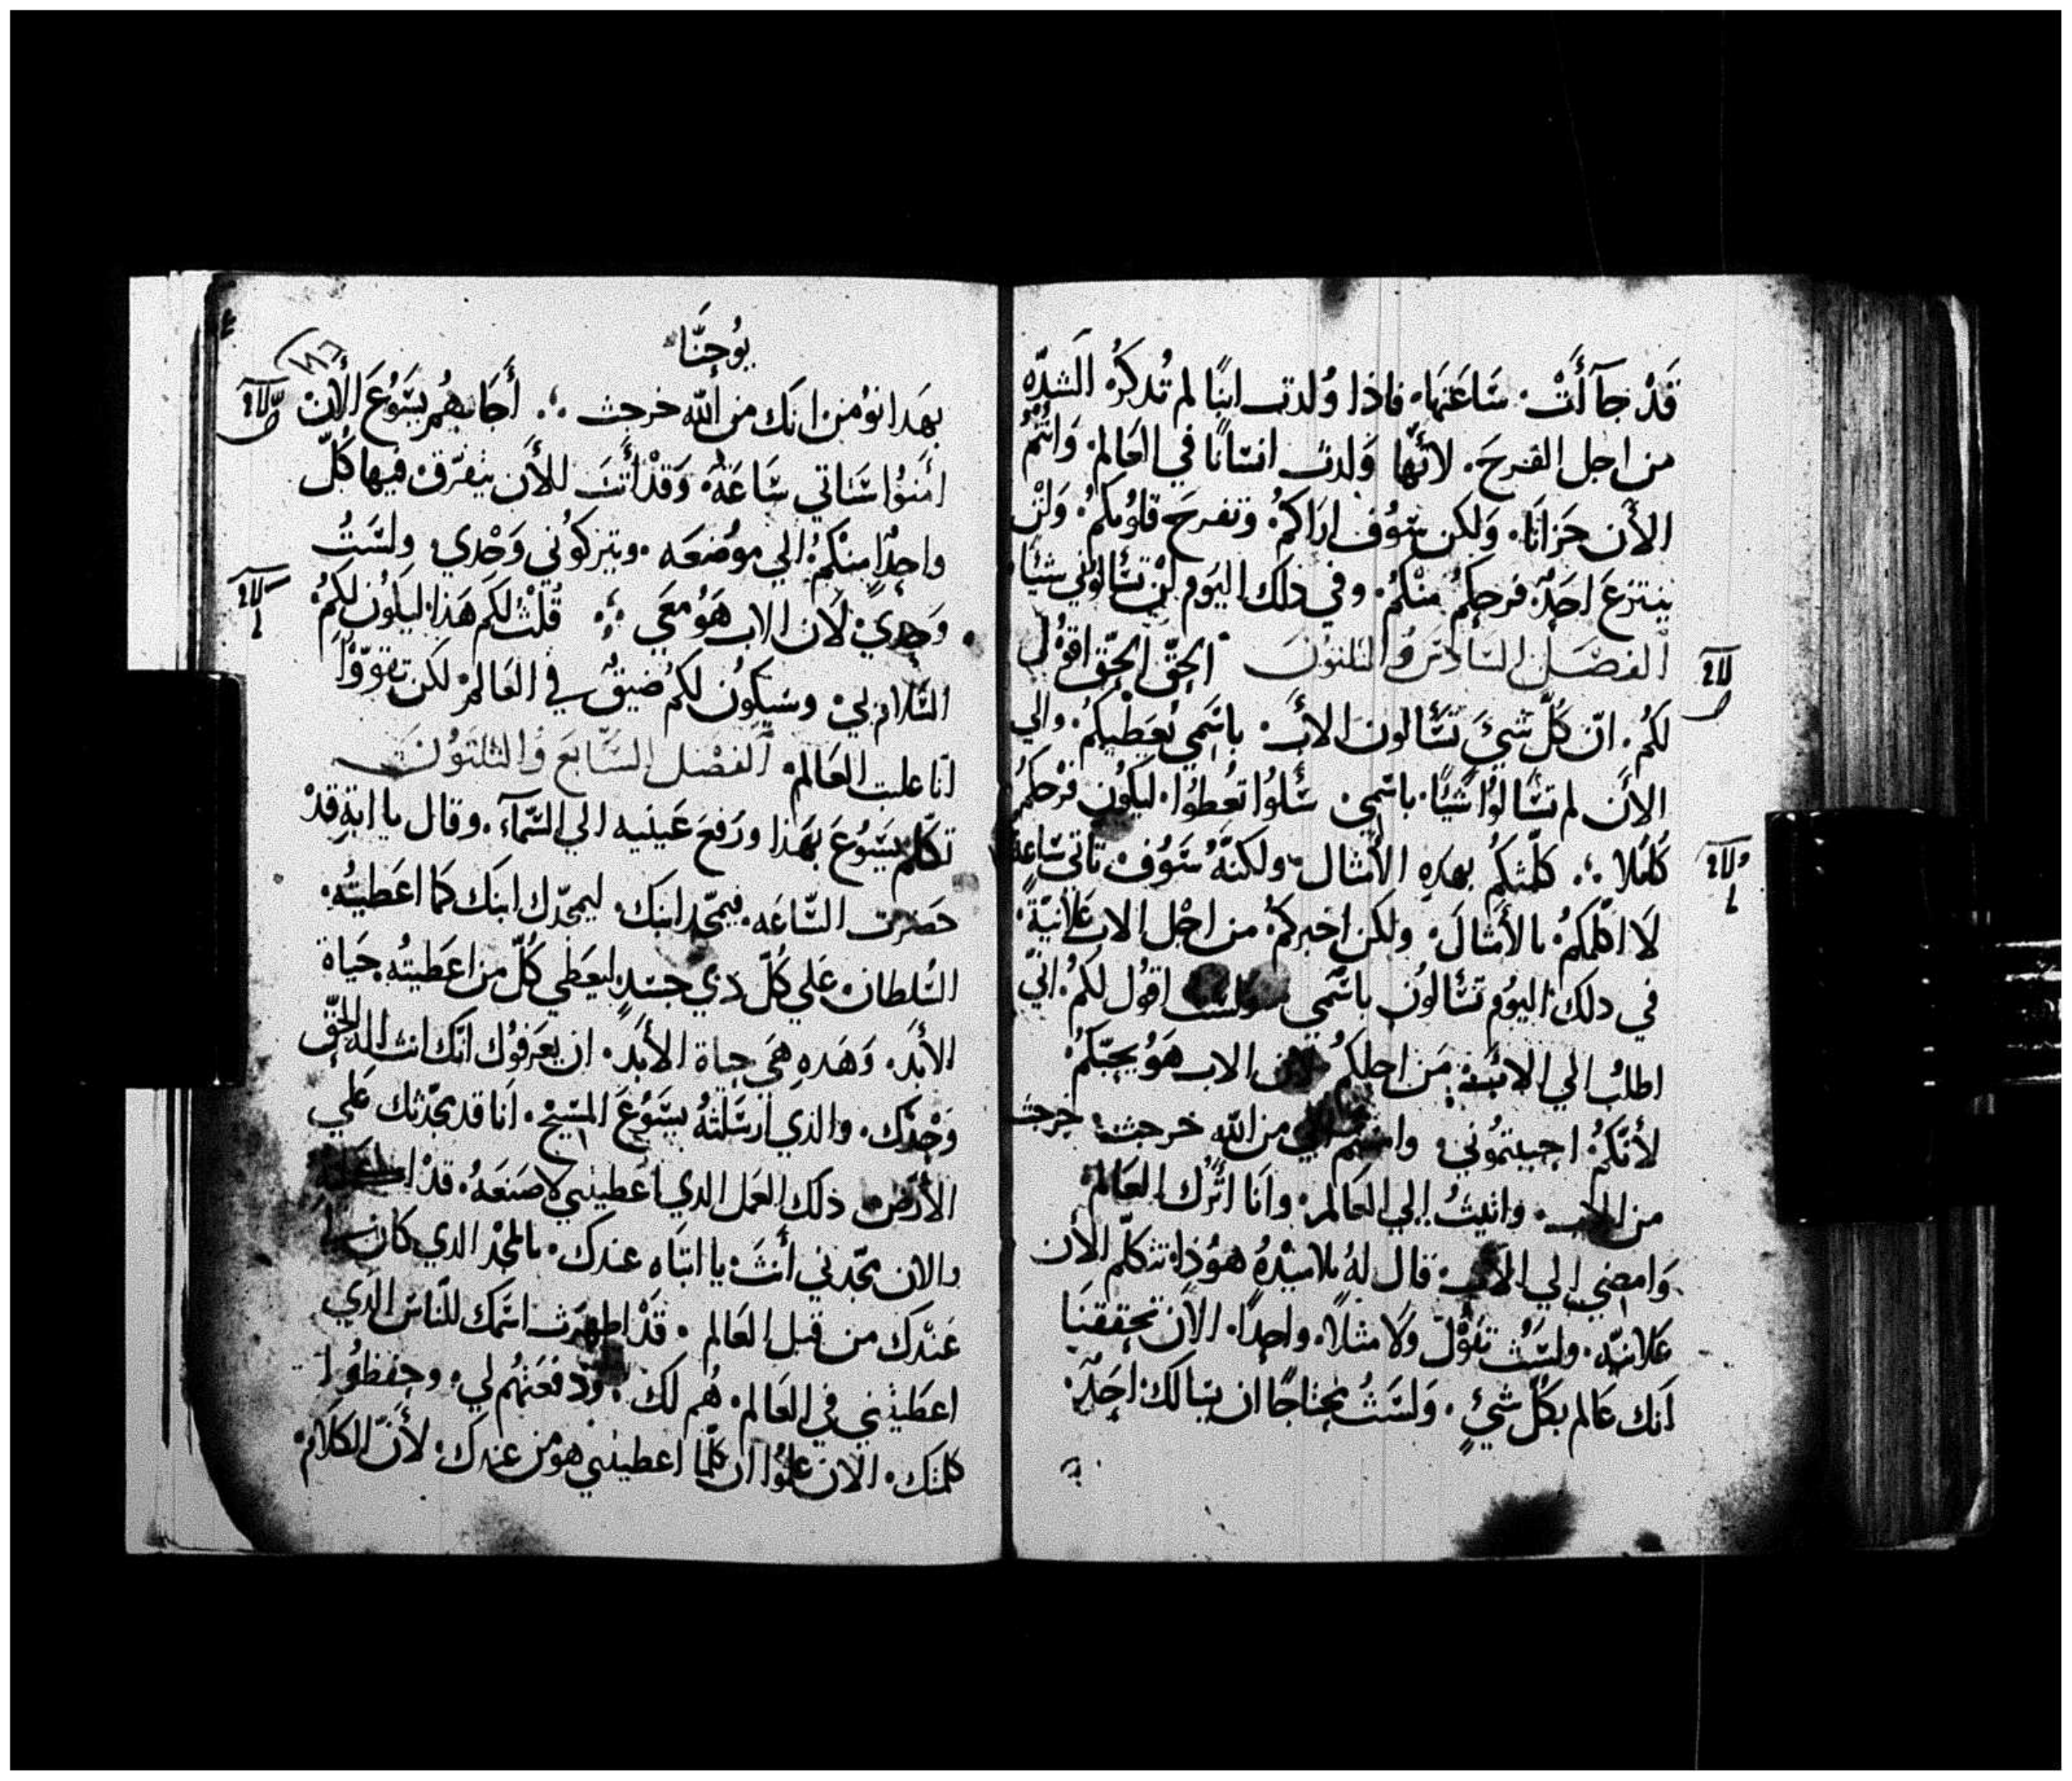 قَدْ جَآأَتْ سَاعَتهَا، فاذا وُلدت ابنًا لم تُدكرُ الشدّه
من اجل الفرحَ. لأنّها وَلدتَ انسَانًا في العَالم وَانتُمْ
الأَن حَزانَا، وَلكن سَوُف ارَاكمُ. وَتفرحَ قلوُبكمُ، وَلنْ
ينتزعَ احَدٌ فرحكمُ منكمُ. وفي ذلك اليَوم لنْ تسَألوُني شيئا،
الفصَل السَادسَ وُالتلتوُنَ الحَقّ الحَقّ اقوُل
لكمُ. انّ كلّ شيَ تسَألون الأبَ. باسَمي يُعَطيكمُ. والي
الأَن لم تسَألوُا شَيًا، باسَمي سَألوُا تعُطوُا، ليكوُن فرَحكمُ
كامُلا ؞ كلّمتكمُ بهدهِ الأمثال، ولكنهُ سَوُف تاتي سَاعةً
لَا اكلمَكمُ بالأمثالَ، ولكن اخبركمُ من اجْل الاب عَلَانيّةً،
في دلك اليوُم تسَألوُن باسَمي ولسَت اقوُل لكمُ. انيّ
اطلبُ الي الابَ من اجلكمُ لان الاب هَوُ يحبّكمُ
لأنّكمُ احببتموُني وامنتم اني من اللّه خرجت، خرجت
من الاب، واتيتُ إلي العَالم، وانَا اتُرك العَالم
وَامضي إلي الأب، قال لهُ تلاميُدهُ هوُذا تتكلّم الأن
عَلانيّه، ولسَتُ تقوُلّ وَلا مثلاً. واحداً. الأن تحققنَا
انَك عَالم بكلّ شيٍ. وَلسَتُ محتاجًا ان يسَالك احَدٌ.
يوُحنّا
بهَدا نؤُمن انَك من اللّه خرجت ؞ أجَابهُم يسَوُعَ الأن
امنوُا سَتاتي سَاعَة، وَقدْ أتتَ للأن يتفرّق فيها كلّ
واحدٍ منكمُ الي موُضعَه. وتتركوُني وَحْدي، ولسَتُ
وَحدي لأن الاب هَوُ معَي ؞ قُلتُ لكمَ هَذا ليكوُن لكمُ
السَّلام بي وسَيكوُن لكمُ ضيقٌ في العَالم لكن تقوّوُا
انا غلبت العَالم، الفصَل السَابعَ وُالتلتوُنَ
تكلم يسَوُعَ بهَذا ورَفعَ عَينيه الي السَّمآء. وقال يا ابةِ قدْ
حَضرت السَّاعَه. فمجّد ابنك. ليمجّدك ابنك كما اعَطيتُه.
السُلطان عَلي كلّ ذي جسَدٍ ليعَطي كلّ من اعَطيتُه حَياة
الأبَد، وَهَدهِ هَي حياة الأبَدَ. ان يعَرفوُك انّك انت الالَه الحَقّ
وَحْدَك. والذي ارَسَلتهُ يسَوُعَ المسَيح. انَا قد مجّدتك علي
الأرَض ذلك العَمل الدي اعَطيتني لاصَنعَهُ. قدْ اكملته
والان مجّدني أنتَ يا ابتَاه عندك. بالمجْد الدي كان لي
عَندَك من قبل العَالم. قَدْ اظهَرت اسَمك للنّاسَ الدَي
اعَطيتني في العَالم. هُم لك. ودَفعَتهُم لي وحفظوُا
كلمتك. الأن علموُا ان كلّما اعطيتني هوُ من عندكَ. لأنّ الكلامَ